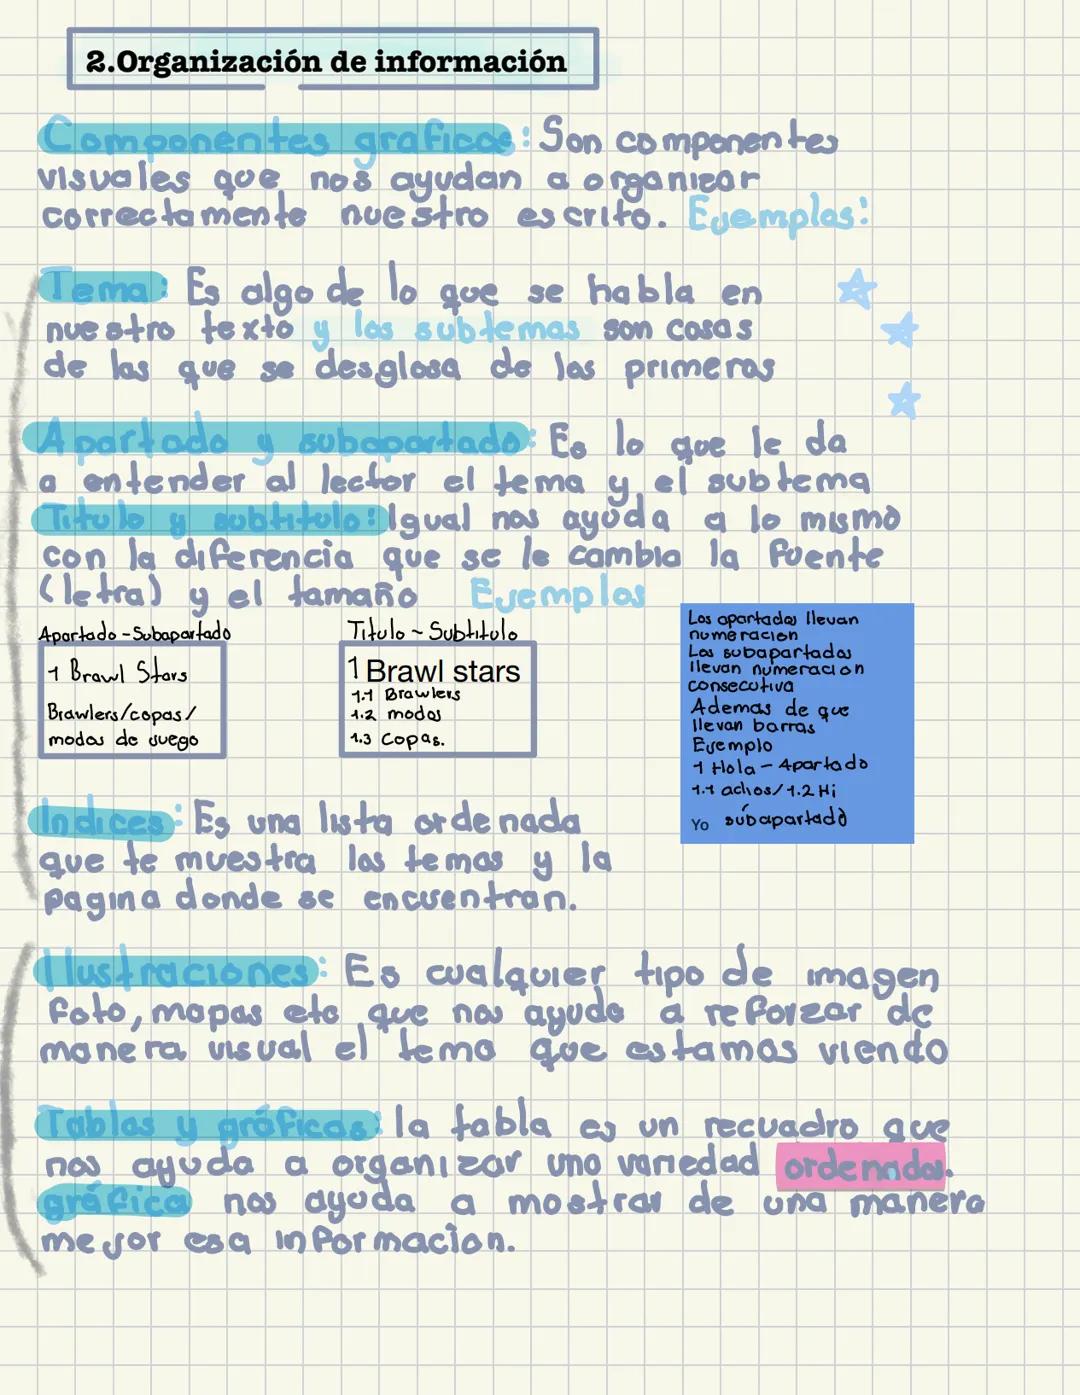 2.Organización de información
Componentes graficos: Son componentes
visuales que nos ayudan a organizar
correctamente nuestro escrito. Ejemplos:
Tema: Es algo de lo que se habla en
nuestro texto y los subtemas son cosas
de las que se desglosa de los primeros
Apartado y subapartado: Es lo que le da
a entender al lector el tema y el subtema
Titulo y subtitulo: Igual nos ayuda a lo mismo
con la diferencia que se le cambia la fuente
(letra) y el tamaño Ejemplos
Apartado - Subapartado
1 Brawl Stars
Brawlers/copas/
modos de juego
Titulo ~ Subtitulo
1 Brawl stars
1.1 Brawlers
1.2 modos
1.3 copas.
Los apartados llevan
numeracion
Los subapartados
llevan numeracion
consecutiva
Ademas de que
llevan barras
Ejemplo
1 Hola - Apartado
1.1 adios/1.2 Hi
Yo subapartado
Indices: Es una lista ordenada
que te muestra los temas y la
pagina donde se encuentran.
Ilustraciones: Es cualquier tipo de imagen
foto, mapas etc que nos ayuda a reforzar de
manera visual el tema que estamos viendo
Tablas y gráficas: la tabla es un recuadro que
nos ayuda a organizar una variedad ordenados.
gráfica nos ayuda a mostrar de una manera
mejor esa información.